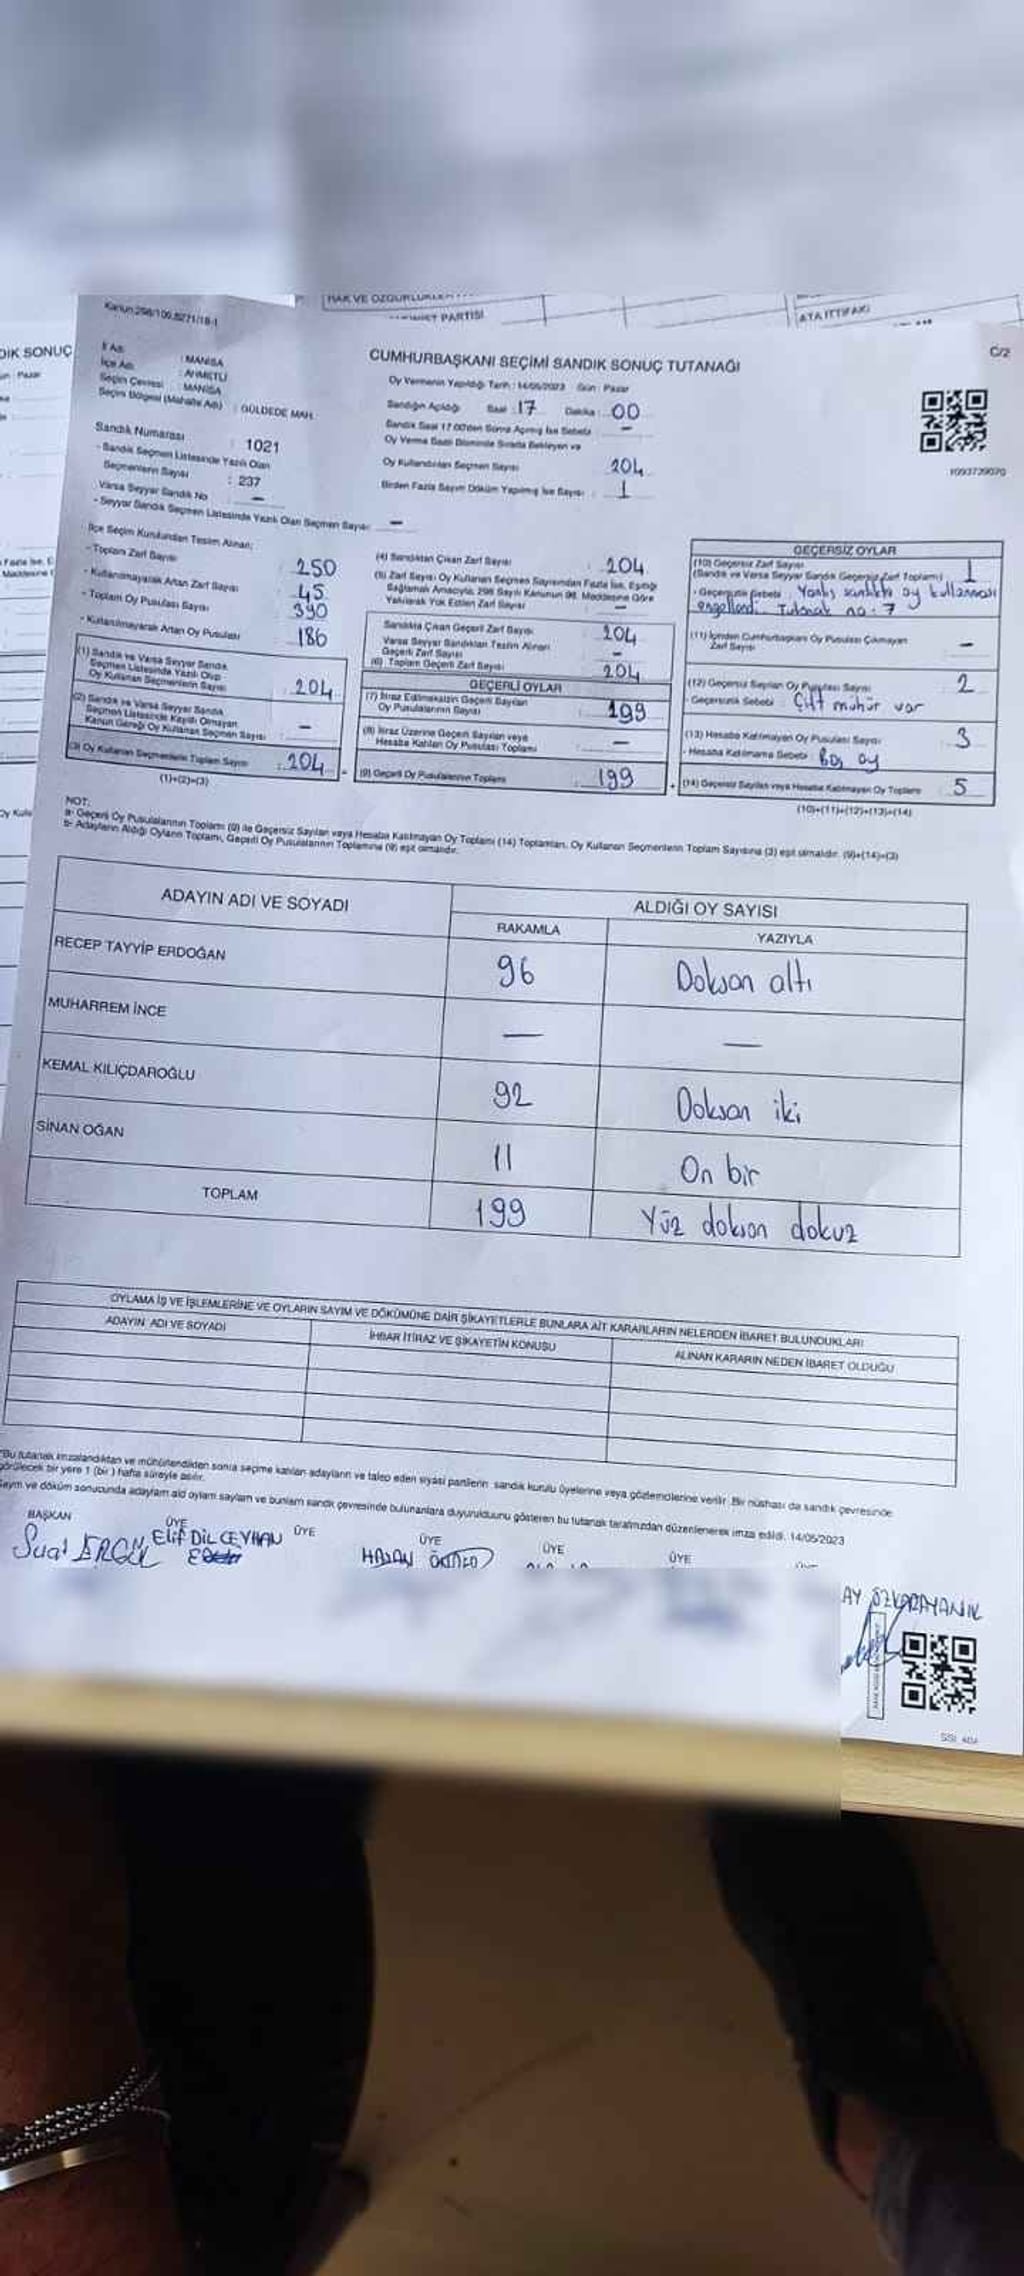 HAK VE ÖZGÜRLÜKLER
PARTİSİ
ATA İTTİFAKI
Kanun:298/109,6271/18-1
DIK SONUÇ
C/2
İl Adı : MANİSA
İlçe Adı : AHMETLİ
Seçim Çevresi : MANİSA
Seçim Bölgesi (Mahalle Adı) : GÜLDEDE MAH.
Sandık Numarası : 1021
- Sandık Seçmen Listesinde Yazılı Olan
Seçmenlerin Sayısı : 237
Varsa Seyyar Sandık No : —
- Seyyar Sandık Seçmen Listesinde Yazılı Olan Seçmen Sayısı : —
CUMHURBAŞKANI SEÇİMİ SANDIK SONUÇ TUTANAĞI
Oy Vermenin Yapıldığı Tarih : 14/05/2023 Gün : Pazar
Sandığın Açıldığı Saat : 17 Dakika : 00
Sandık Saat 17.00'den Sonra Açılmış İse Sebebi : —
Oy Verme Saati Bitiminde Sırada Bekleyen ve
Oy Kullandırılan Seçmen Sayısı 204
Birden Fazla Sayım Döküm Yapılmış İse Sayısı : 1
1093729070
İlçe Seçim Kurulundan Teslim Alınan;
- Toplam Zarf Sayısı 250
- Kullanılmayarak Artan Zarf Sayısı 45
- Toplam Oy Pusulası Sayısı 390
- Kullanılmayarak Artan Oy Pusulası 186
(1) Sandık ve Varsa Seyyar Sandık
Seçmen Listesinde Yazılı Olup
Oy Kullanan Seçmenlerin Sayısı : 204
(2) Sandık ve Varsa Seyyar Sandık
Seçmen Listesinde Kayıtlı Olmayan
Kanun Gereği Oy Kullanan Seçmen Sayısı : —
(3) Oy Kullanan Seçmenlerin Toplam Sayısı : 204
(1)+(2)=(3)
(4) Sandıktan Çıkan Zarf Sayısı : 204
(5) Zarf Sayısı Oy Kullanan Seçmen Sayısından Fazla İse, Eşitliği
Sağlamak Amacıyla, 298 Sayılı Kanunun 98. Maddesine Göre
Yakılarak Yok Edilen Zarf Sayısı : —
Sandıkta Çıkan Geçerli Zarf Sayısı : 204
Varsa Seyyar Sandıktan Teslim Alınan
Geçerli Zarf Sayısı : —
(6) Toplam Geçerli Zarf Sayısı : 204
GEÇERLİ OYLAR
(7) İtiraz Edilmeksizin Geçerli Sayılan
Oy Pusulalarının Sayısı : 199
(8) İtiraz Üzerine Geçerli Sayılan veya
Hesaba Katılan Oy Pusulası Toplamı : —
(9) Geçerli Oy Pusulalarının Toplamı : 199
GEÇERSİZ OYLAR
(10) Geçersiz Zarf Sayısı
(Sandık ve Varsa Seyyar Sandık Geçersiz Zarf Toplamı) : 1
- Geçersizlik Sebebi : Yanlış sandıkta oy kullanması
engellendi Tutanak no: 7
(11) İçinden Cumhurbaşkanı Oy Pusulası Çıkmayan
Zarf Sayısı —
(12) Geçersiz Sayılan Oy Pusulası Sayısı 2
- Geçersizlik Sebebi : Çift mühür var
(13) Hesaba Katılmayan Oy Pusulası Sayısı 3
- Hesaba Katılmama Sebebi : Boş oy
(14) Geçersiz Sayılan veya Hesaba Katılmayan Oy Toplamı : 5
(10)+(11)+(12)+(13)=(14)
NOT:
a- Geçerli Oy Pusulalarının Toplamı (9) ile Geçersiz Sayılan veya Hesaba Katılmayan Oy Toplamı (14) Toplamları, Oy Kullanan Seçmenlerin Toplam Sayısına (3) eşit olmalıdır. (9)+(14)=(3)
b- Adayların Aldığı Oyların Toplamı, Geçerli Oy Pusulalarının Toplamına (9) eşit olmalıdır.
ADAYIN ADI VE SOYADI
ALDIĞI OY SAYISI
RAKAMLA YAZIYLA
RECEP TAYYİP ERDOĞAN 96 Doksan altı
MUHARREM İNCE — —
KEMAL KILIÇDAROĞLU 92 Doksan iki
SİNAN OĞAN 11 On bir
TOPLAM 199 Yüz doksan dokuz
OYLAMA İŞ VE İŞLEMLERİNE VE OYLARIN SAYIM VE DÖKÜMÜNE DAİR ŞİKAYETLERLE BUNLARA AİT KARARLARIN NELERDEN İBARET BULUNDUKLARI
ADAYIN ADI VE SOYADI İHBAR İTİRAZ VE ŞİKAYETİN KONUSU ALINAN KARARIN NEDEN İBARET OLDUĞU
*Bu tutanak imzalandıktan ve mühürlendikten sonra seçime katılan adayların ve talep eden siyasi partilerin sandık kurulu üyelerine veya gözlemcilerine verilir. Bir nüshası da sandık çevresinde
görülecek bir yere 1 (bir ) hafta süreyle asılır.
Sayım ve döküm sonucunda adayların ald oyların sayıları ve bunların sandık çevresinde bulunanlara duyurulduunu gösteren bu tutanak tarafımızdan düzenlenerek imza edildi. 14/05/2023
BAŞKAN ÜYE ÜYE ÜYE ÜYE ÜYE
Suat ERGÜL Elif DİL CEYHAN HASAN
AY ÖZKARAYANIK